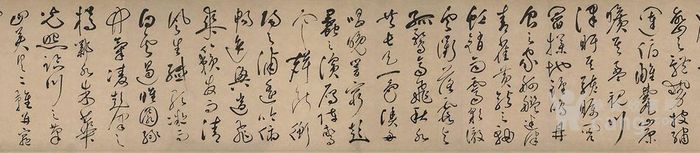 巒之體勢披繡
闥俯雕甍山原
曠其盈視川
澤盱其駭矚閭
閻撲地鐘鳴鼎
食之家舸艦迷津
青雀黃龍之軸
虹銷雨霽彩徹
雲衢落霞與
孤鶩齊飛秋水
共長天一色漁舟
唱晚響窮彭
蠡之濱雁陣驚
寒聲斷衡
陽之浦遙吟俯
暢逸興遄飛
爽籟發而清
風生纖歌凝而
白雲遏睢園綠
竹氣凌彭澤之
樽鄴水朱華
光照臨川之筆
四美具二難并窮